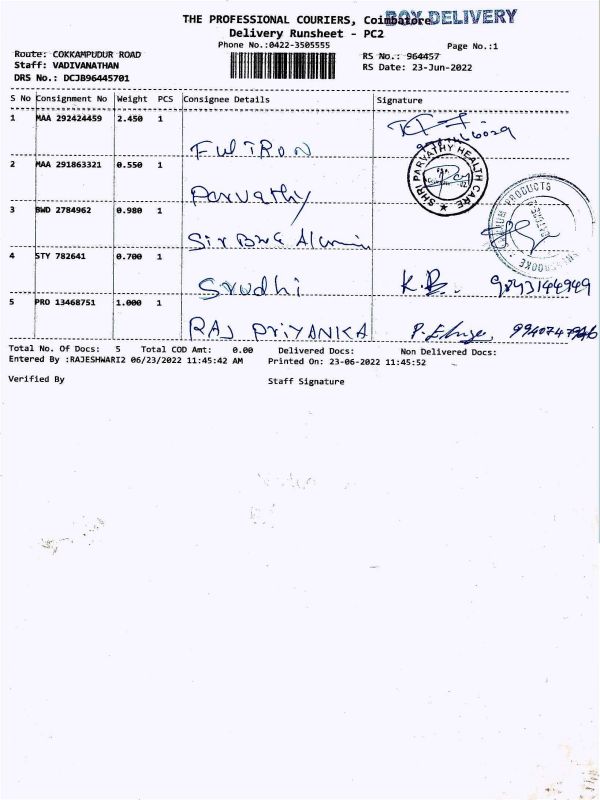 THE PROFESSIONAL COURIERS, Coimbatore BOX DELIVERY
Delivery Runsheet - PC2
Phone No.:0422-3505555
Page No.:1
Route: COKKAMPUDUR ROAD
RS No.: 964457
Staff: VADIVANATHAN
RS Date: 23-Jun-2022
DRS No.: DCJB96445701
S No Consignment No Weight PCS Consignee Details Signature
1 MAA 292424459 2.450 1
FulTRON
2 MAA 291863321 0.550 1
Parvathy
SHRI PARVATHY HEALTH CARE
3 BWD 2784962 0.980 1
PRODUCTS
4 STY 782641 0.700 1
Srudhi K.B. 9843144949
5 PRO 13468751 1.000 1
RAJ PriYANKA
Total No. Of Docs: 5 Total COD Amt: 0.00 Delivered Docs: Non Delivered Docs:
Entered By :RAJESHWARI2 06/23/2022 11:45:42 AM Printed On: 23-06-2022 11:45:52
Verified By Staff Signature